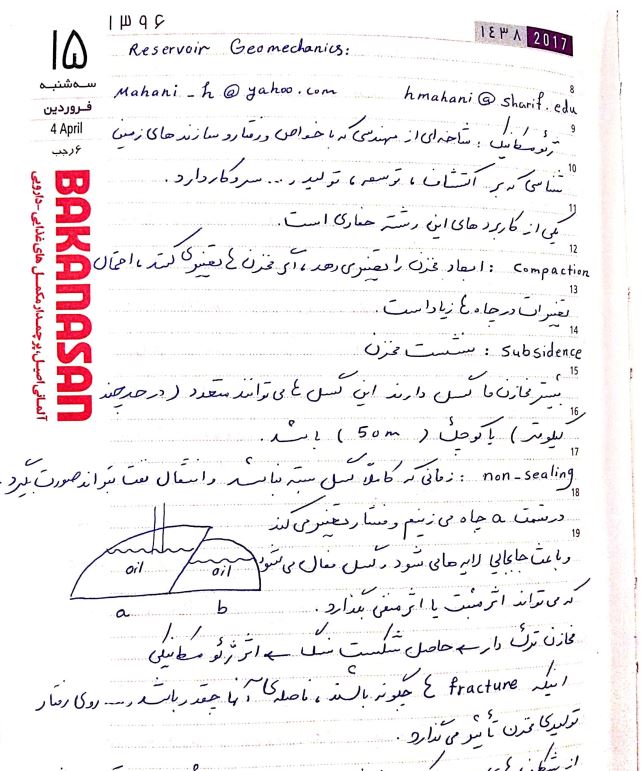 ۱۳۹۶
۱۴۳۸ 2017
۱۵
سه‌شنبه
فروردین
4 April
۶ رجب
BAKANASAN
آلمانی اصیل، پرچمدار مکمل های غذایی-دارویی
Reservoir Geomechanics:
8
Mahani_h@yahoo.com hmahani@sharif.edu
9
ژئومکانیک : شاخه‌ای از مهندسی که با خواص و رفتار و سازند های زمین
10
شناسی که بر اکتشات ، توسعه ، تولید و ... سروکار دارد .
11
یکی از کاربرد های این رشته حفاری است .
12
compaction : ابعاد مخزن را تغییر می دهد ، اگر مخزن ها تغییر کنند ، احتمال
13
تغییرات در چاه ها زیاد است .
14
Subsidence : نشست مخزن
15
بیشتر مخازن ما گسل دارند این گسل ها می توانند متعدد ( در حد چند
16
کیلومتر ) یا کوچک ( 50m ) باشد .
17
non-sealing : زمانی که کاملاً گسل بسته نباشد و انتقال نفت بتواند صورت بگیرد .
18
در قسمت a چاه می زنیم و فشار تغییر می کند
19
و باعث جابجایی لایه ها می شود و گسل فعال می شود
oil oil
a b
که می تواند اثر مثبت یا اثر منفی بگذارد .
مخازن ترک دار ← حاصل شکست سنگ ← اثر ژئومکانیکی
اینکه fracture ها چگونه باشند ، فاصله ی آنها چقدر باشد و ... روی رفتار
تولیدی مخزن تأثیر می گذارد .